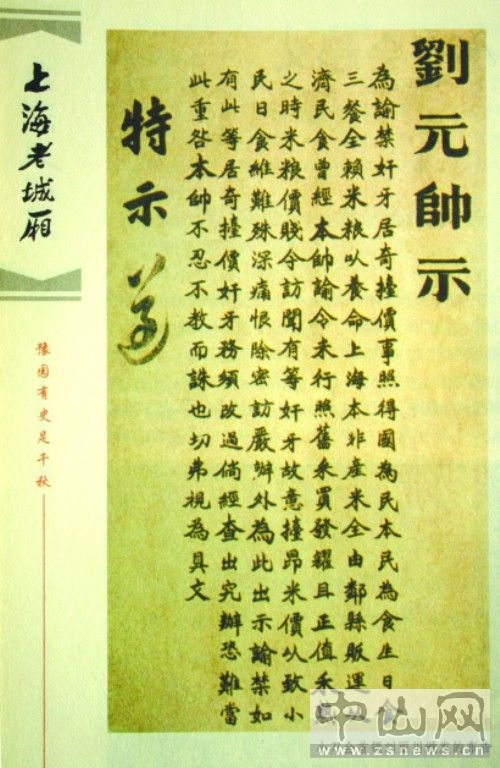 劉元帥示
為諭禁奸牙居奇擡價事照得國為民本民為食生日
三餐全賴米粮以養命上海本非産米全由鄰縣販運以
濟民食曾經本帥諭令米行照舊采買發糶且正值禾
之時米粮價賤今訪聞有等奸牙故意擡昂米價以致小
民日食維難殊深痛恨除密訪嚴辦外為此出示諭禁如
有此等居奇擡價奸牙務須改過倘經查出究辦恐難當
此重咎本帥不忍不教而誅也切弗視為具文
特示 遵
上海老城厢
豫园有史足千秋
中山网
www.zsnews.cn